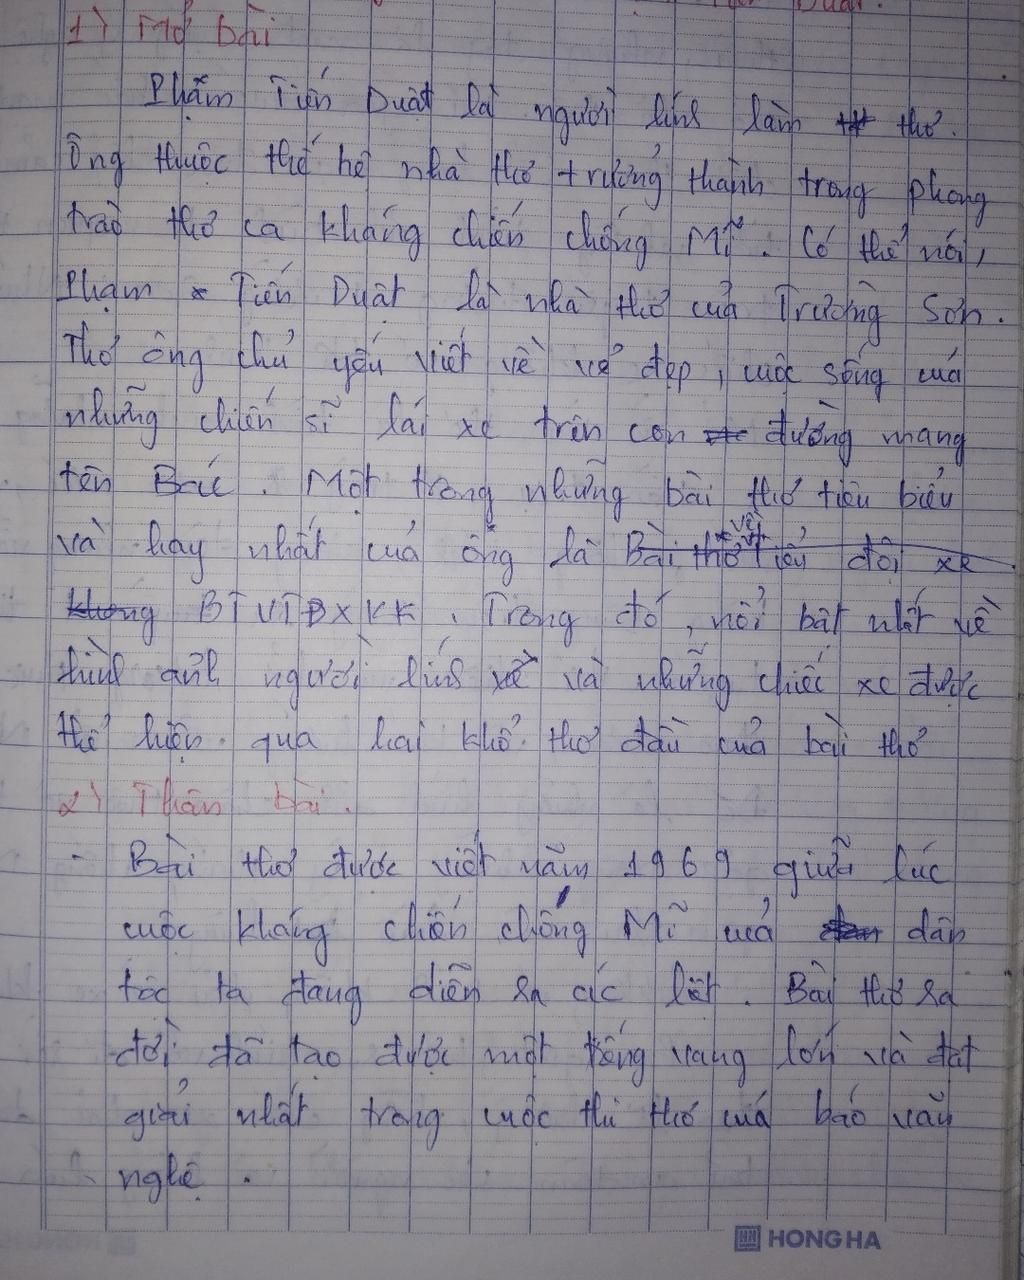 Duật.
1) Mở bài
Phạm Tiến Duật là người lính làm thơ.
Ông thuộc thế hệ nhà thơ trưởng thành trong phong
trào thơ ca kháng chiến chống Mĩ. Có thể nói,
Phạm Tiến Duật là nhà thơ của Trường Sơn.
Thơ ông chủ yếu viết về vẻ đẹp, cuộc sống của
những chiến sĩ lái xe trên con đường mang
tên Bác. Một trong những bài thơ tiêu biểu
và hay nhất của ông là Bài thơ về tiểu đội xe
không BTVTĐXKK. Trong đó, nổi bật nhất về
hình ảnh người lính xế và những chiếc xe được
thể hiện qua hai khổ thơ đầu của bài thơ
2) Thân bài.
- Bài thơ được viết năm 1969 giữa lúc
cuộc kháng chiến chống Mĩ của dân
tộc ta đang diễn ra ác liệt. Bài thơ ra
đời đã tạo được một tiếng vang lớn và đạt
giải nhất trong cuộc thi thơ của báo văn
nghệ.
HONG HA